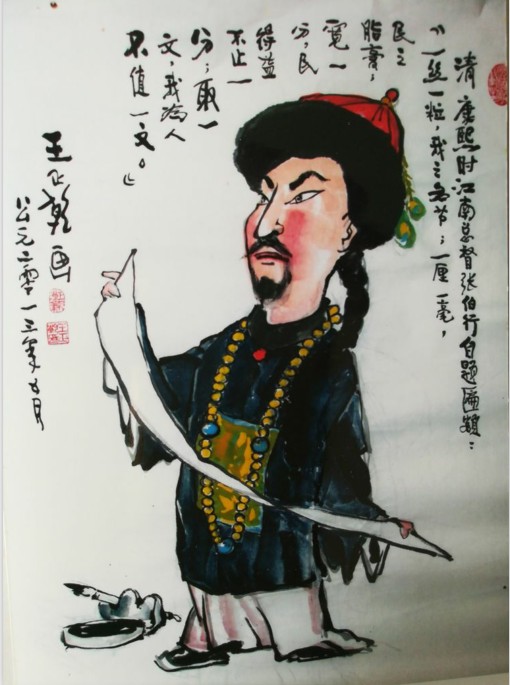 清康熙时江南总督张伯行自题匾额：
“一丝一粒，我之名节；一厘一毫，
民之
脂膏；
宽一
分，民
得益
不止一
分；取一
文，我为人
不值一文。”
王乾画
公元二零一三年五月